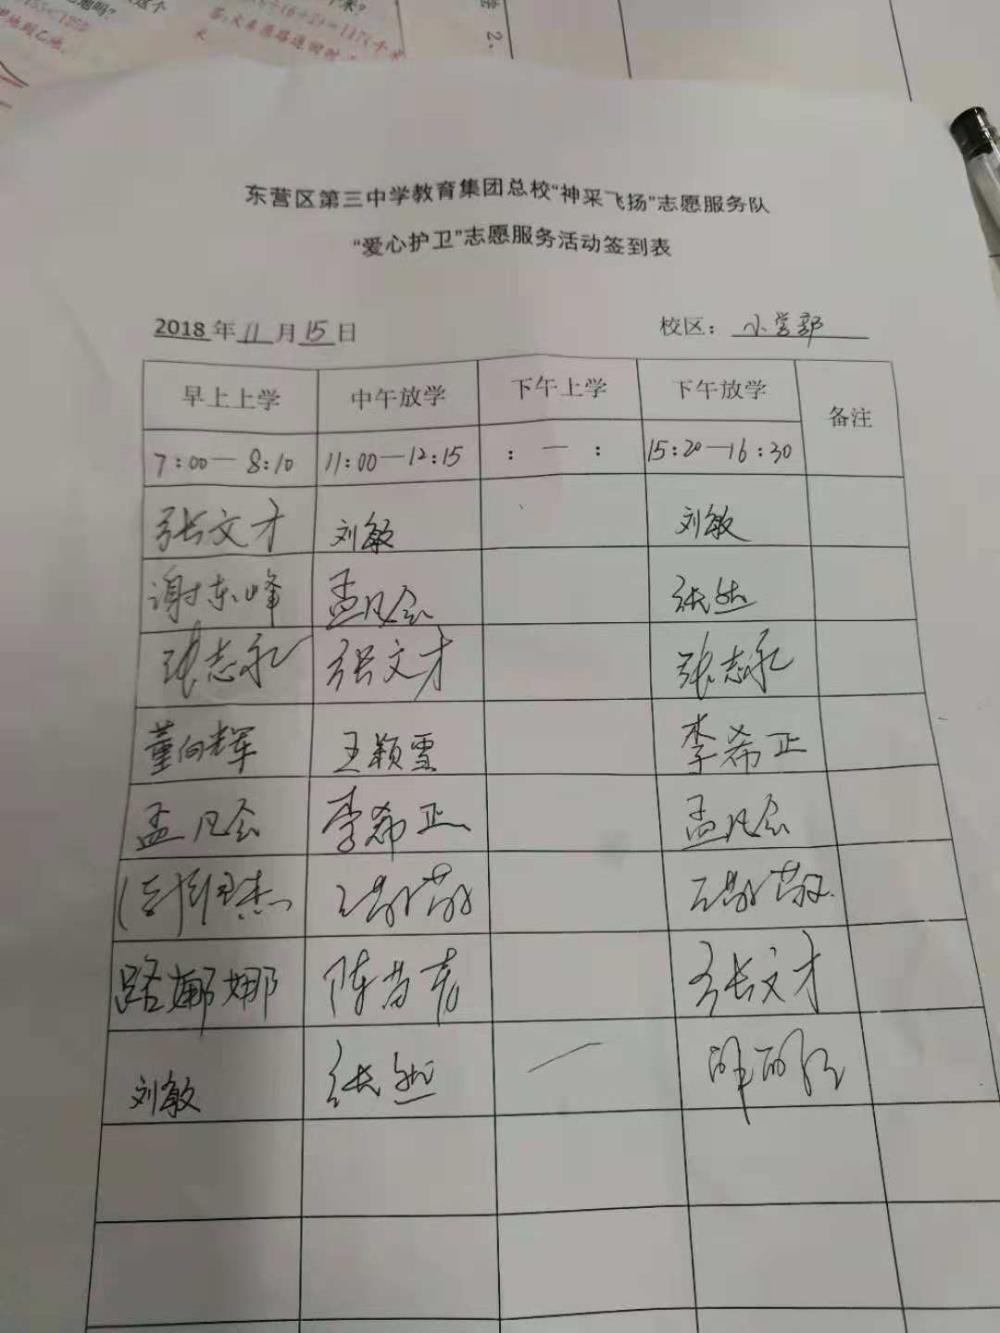 东营区第三中学教育集团总校“神采飞扬”志愿服务队
“爱心护卫”志愿服务活动签到表
2018年11月15日 校区：小学部
早上上学 中午放学 下午上学 下午放学 备注
7:00—8:10 11:00—12:15 : — : 15:20—16:30
张文才 刘敏 刘敏
谢东峰 孟凡会 张然
张志永 张文才 张志永
董向辉 王颖雪 李希正
孟凡会 李希正 孟凡会
路娜娜 张文才
刘敏 张然 —